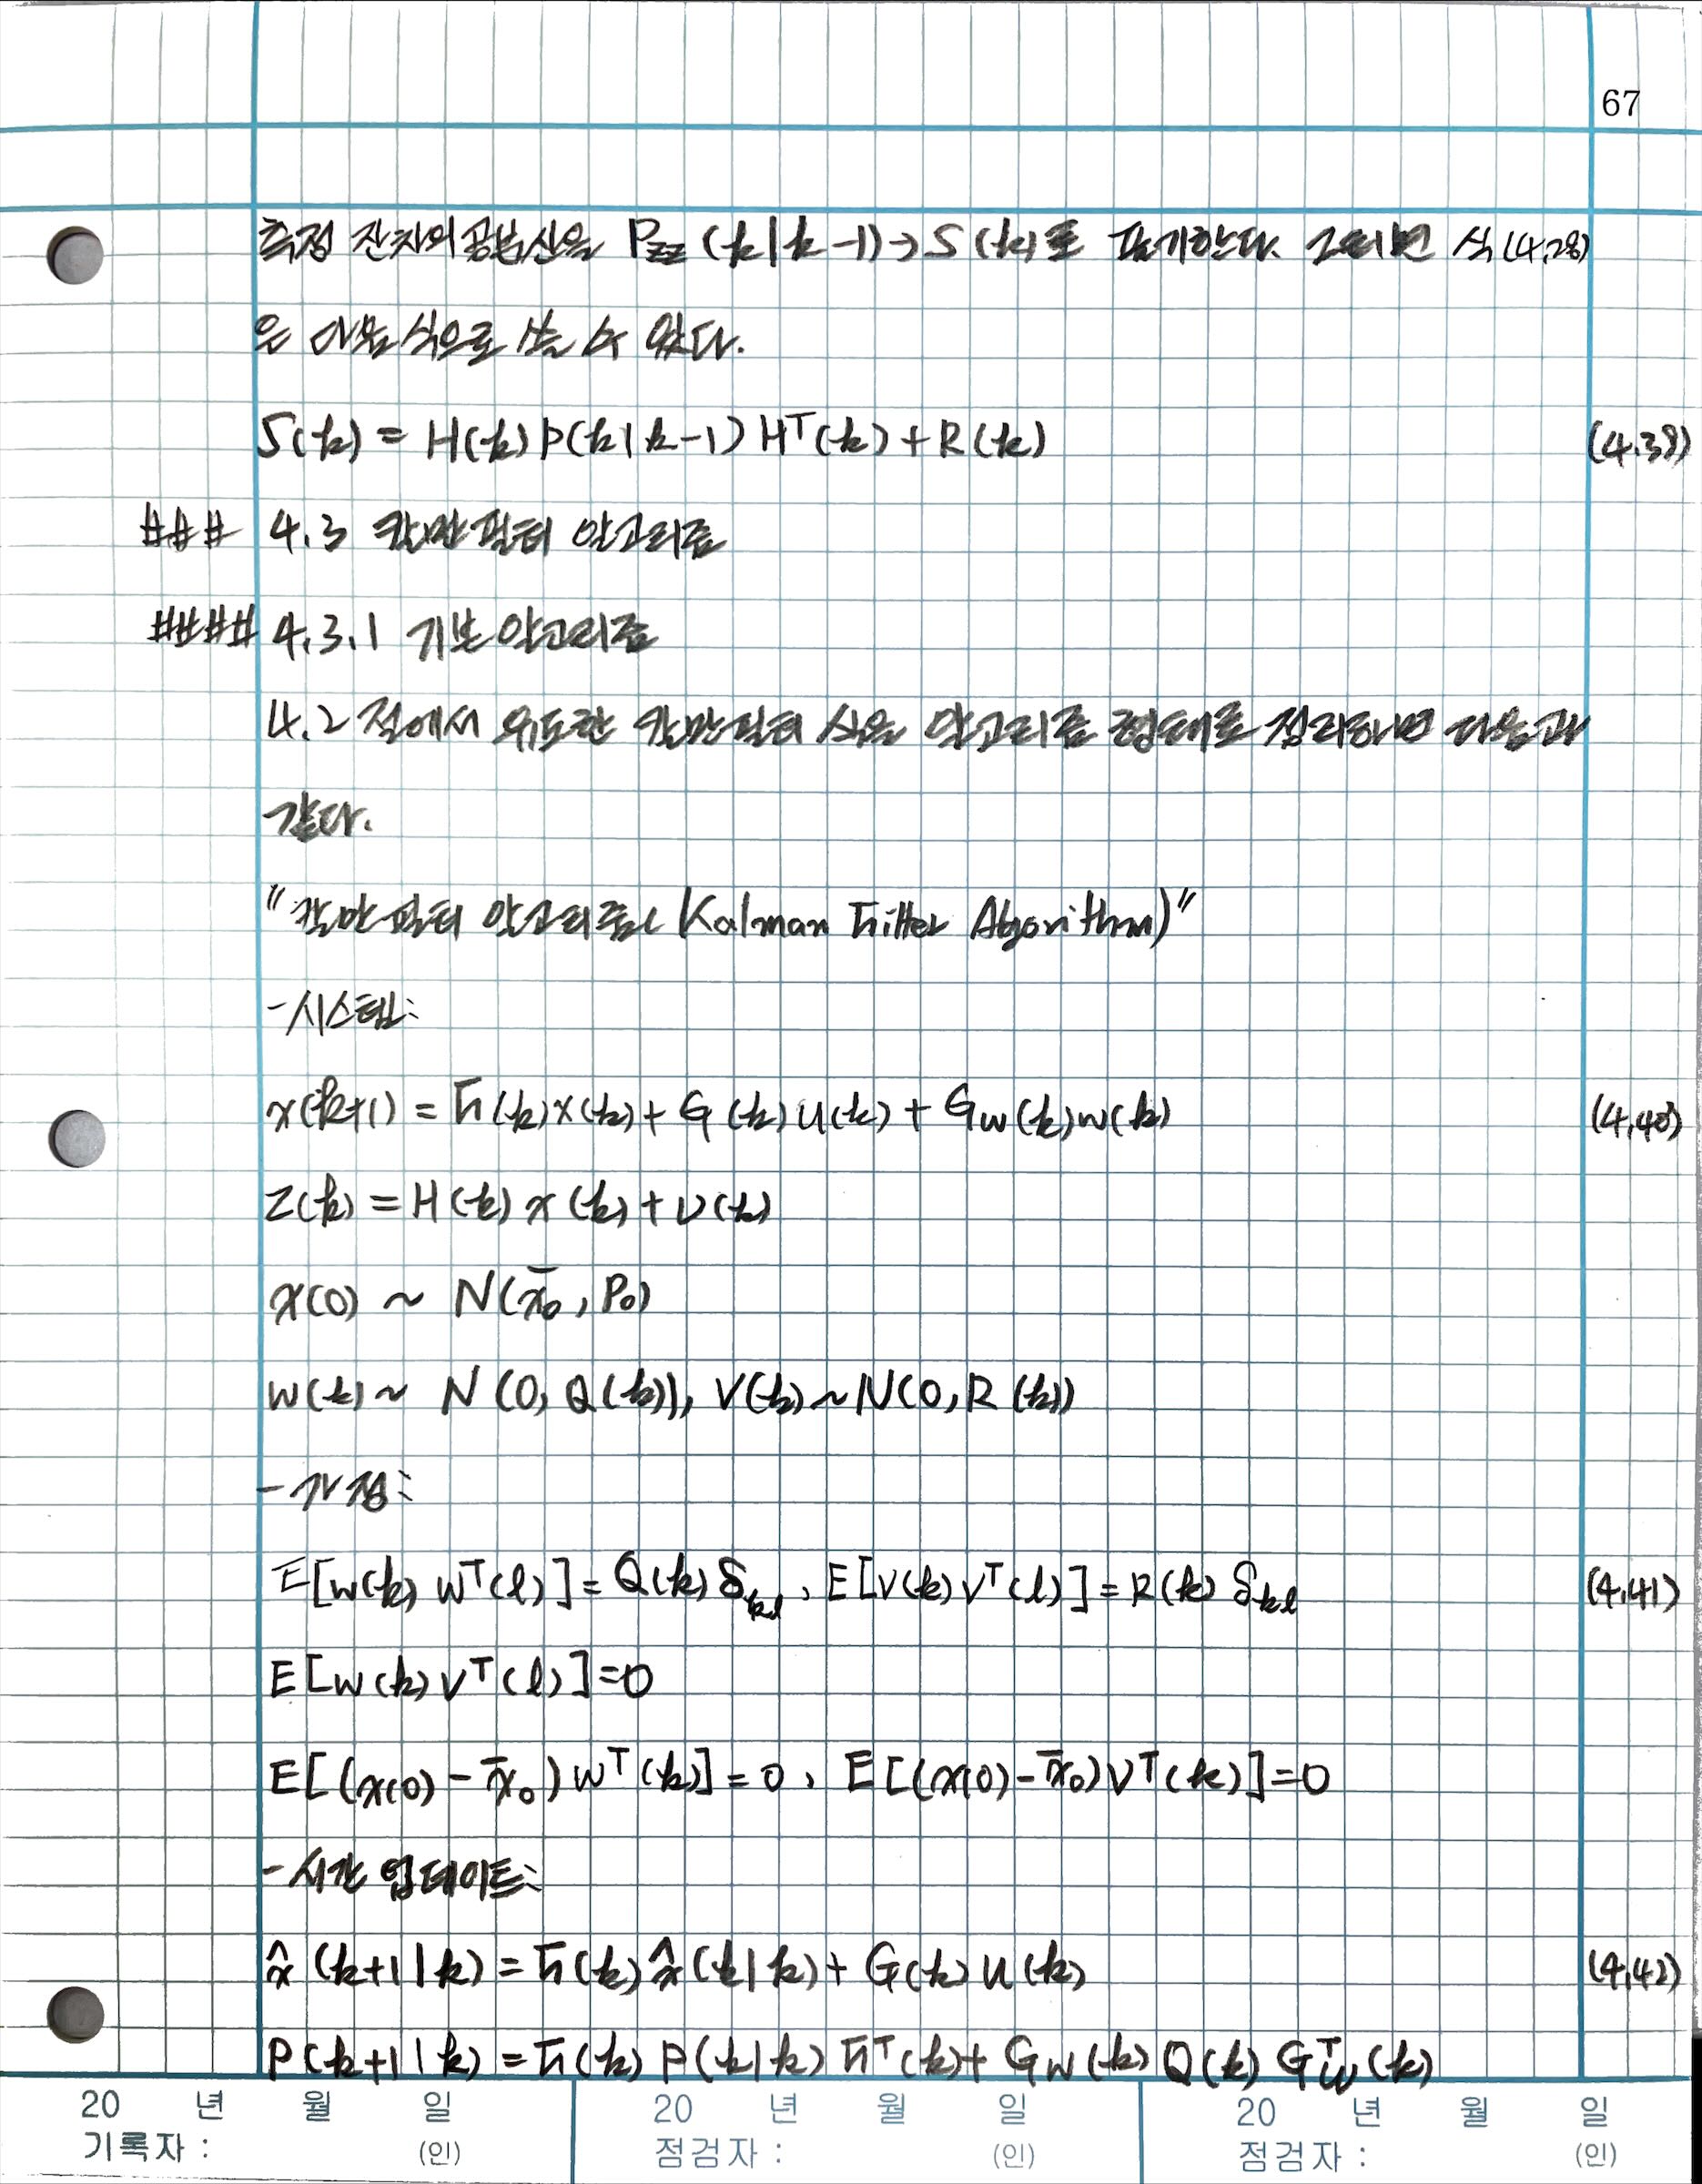 67
측정 잔차의 공분산을 Pzz(k|k-1)→S(k)로 표기한다. 그러면 식(4.28)
은 다음 식으로 쓸 수 있다.
S(k) = H(k)P(k|k-1)Hᵀ(k)+R(k) (4.39)
### 4.3 칼만필터 알고리즘
#### 4.3.1 기본 알고리즘
4.2 절에서 유도한 칼만필터 식을 알고리즘 형태로 정리하면 다음과
같다.
"칼만 필터 알고리즘(Kalman Filter Algorithm)"
-시스템:
x(k+1) = F(k)x(k)+G(k)u(k)+Gw(k)w(k) (4.40)
z(k) = H(k)x(k)+v(k)
x(0) ~ N(x̄₀, P₀)
w(k) ~ N(0, Q(k)), v(k) ~ N(0, R(k))
-가정:
E[w(k)wᵀ(l)] = Q(k)δkl, E[v(k)vᵀ(l)] = R(k)δkl (4.41)
E[w(k)vᵀ(l)]=0
E[(x(0)-x̄₀)wᵀ(k)]=0, E[(x(0)-x̄₀)vᵀ(k)]=0
-시간 업데이트:
x̂(k+1|k) = F(k)x̂(k|k)+G(k)u(k) (4.42)
P(k+1|k) = F(k)P(k|k)Fᵀ(k)+Gw(k)Q(k)Gwᵀ(k)
20 년 월 일 20 년 월 일 20 년 월 일
기록자 : (인) 점검자 : (인) 점검자 : (인)